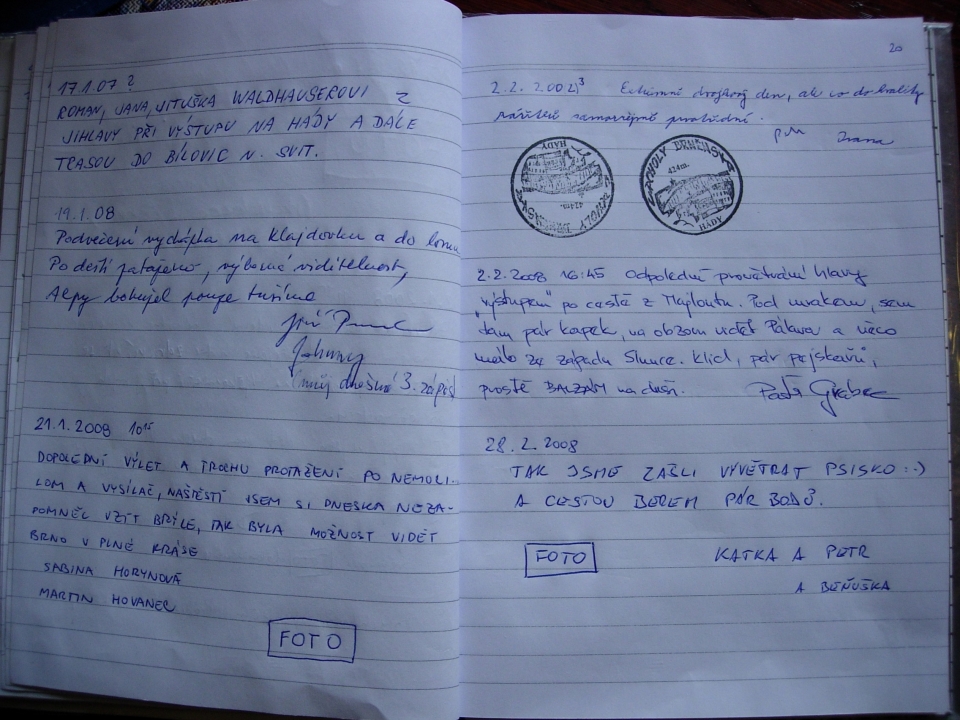 17.1.07 2
ROMAN, JANA, JITUŠKA WALDHAUSEROVI Z
JIHLAVY PŘI VÝSTUPU NA HÁDY A DÁLE
TRASOU DO BÍLOVIC N. SVIT.
19.1.08
Podvečerní vycházka na Klajdovku a do lomu
Po dešti zataženo, výborná viditelnost,
Alpy bohužel pouze tušíme
Jiří
Johnny
(můj dnešní 3. zápis
21.1.2008 10¹⁵
DOPOLEDNÍ VÝLET A TROCHU PROTAŽENÍ PO NEMOCI..
LOM A VYSÍLAČ, NAŠTĚSTÍ JSEM SI DNESKA NEZA-
POMNĚL VZÍT BRÝLE, TAK BYLA MOŽNOST VIDĚT
BRNO V PLNÉ KRÁSE
SABINA HORYNOVÁ
MARTIN HOVANEC
FOTO
20
2.2. 2002)³ Extrémně drsný den, ale co do kvality
samozřejmě
HÁDY
424m.
HOLY BRNĚNSKA
424m.
HÁDY
2.2.2008 16:45 Odpolední provětrání hlavy
"výstupem" po cestě z Majlontu. Pod mrakem, sem
tam pár kapek, na obzoru vidět Pálavu a něco
málo ze západu Slunce. Klid, pár pejskařů,
prostě BALZÁM na duši.
28.2.2008
TAK JSME ZAŠLI VYVĚTRAT PSISKO :-)
A CESTOU BEREM PÁR BODŮ.
FOTO
KATKA A PETR
A BEŇUŠKA